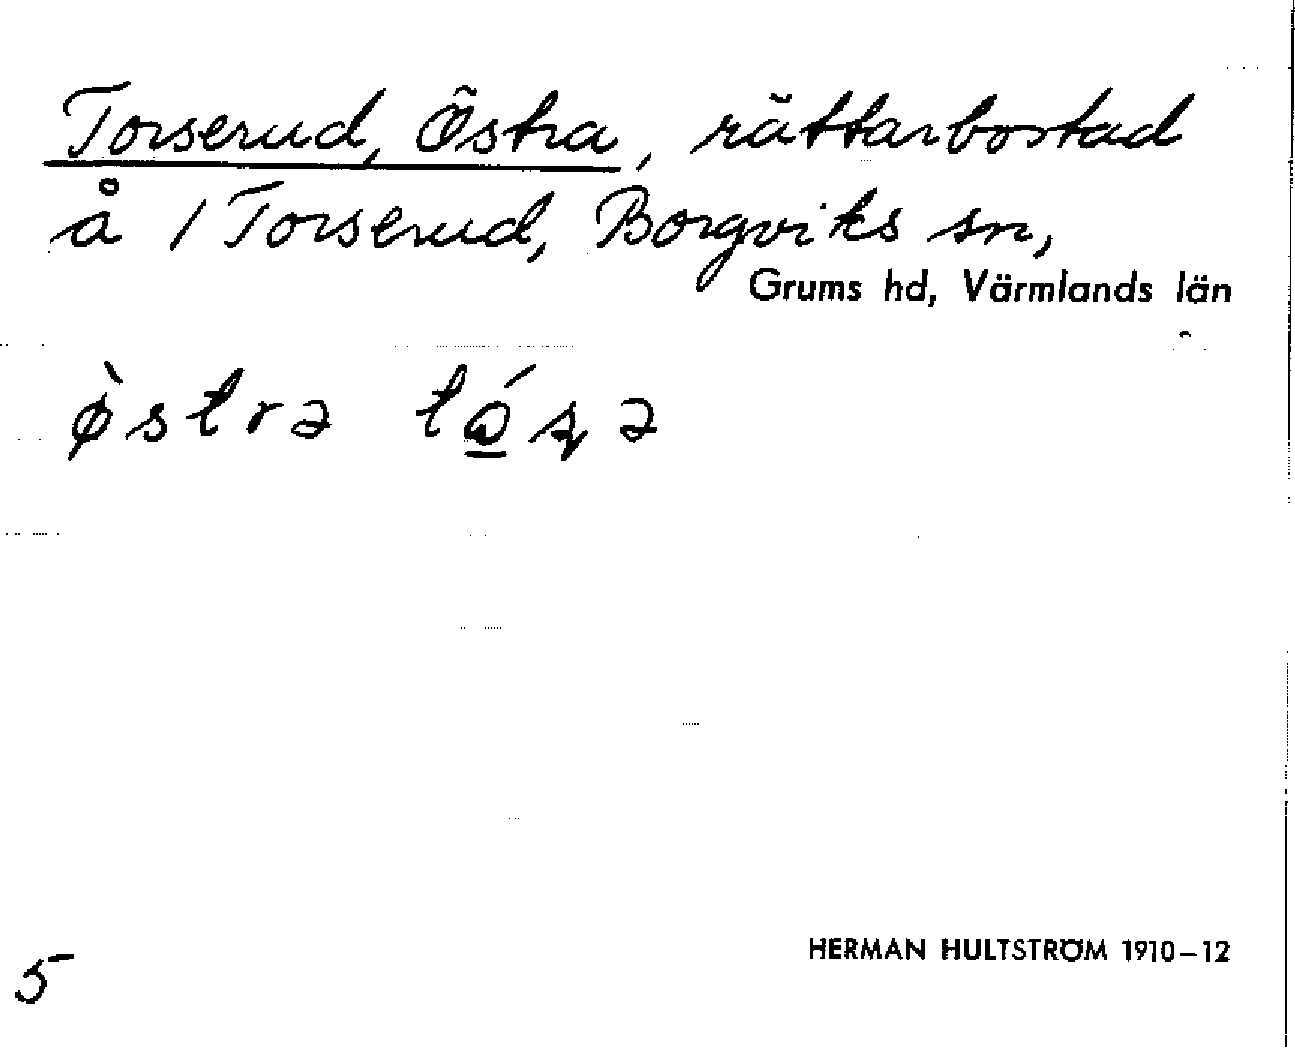 Torserud, Östra, rättarbostad
å / Torserud, Borgviks sn,
Grums hd, Värmlands län
ø̀strə
HERMAN HULTSTRÖM 1910–12
5